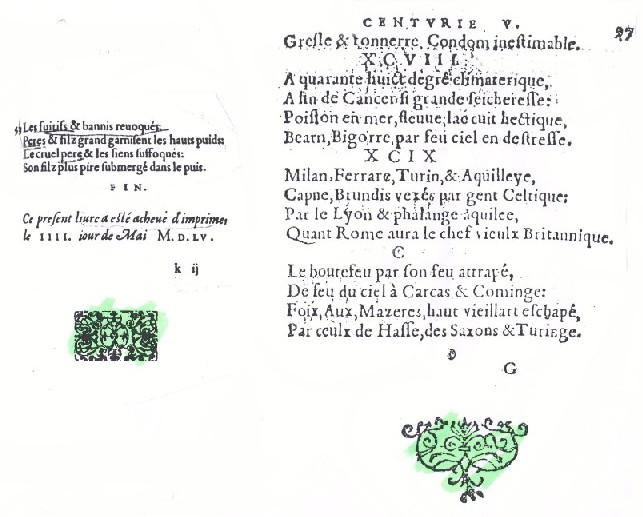 Les fuitifs & bannis reuoqués:
Peres & filz grand garnisent les hauts puids:
Le cruel pere & les siens suffoqués:
Son filz plus pire submergé dans le puis.
FIN.
Ce present liure a esté acheué d'imprimer
le IIII. iour de Mai M. D. LV.
k ij
CENTVRIE V. 97
Gresle & tonnerre, Condom inestimable.
XCVIII
A quarante huict degré climaterique,
A fin de Cancer si grande seicheresse:
Poisson en mer, fleuue, lac cuit hectique,
Bearn, Bigorre, par feu ciel en destresse.
XCIX
Milan, Ferrare, Turin, & Aquilleye,
Capne, Brundis vexés par gent Celtique:
Par le Lyon & phalange aquilee,
Quant Rome aura le chef vieulx Britannique.
C
Le boutefeu par son feu attrapé,
De feu du ciel à Carcas & Cominge:
Foix, Aux, Mazeres, haut vieillart eschapé,
Par ceulx de Hasse, des Saxons & Turinge.
G